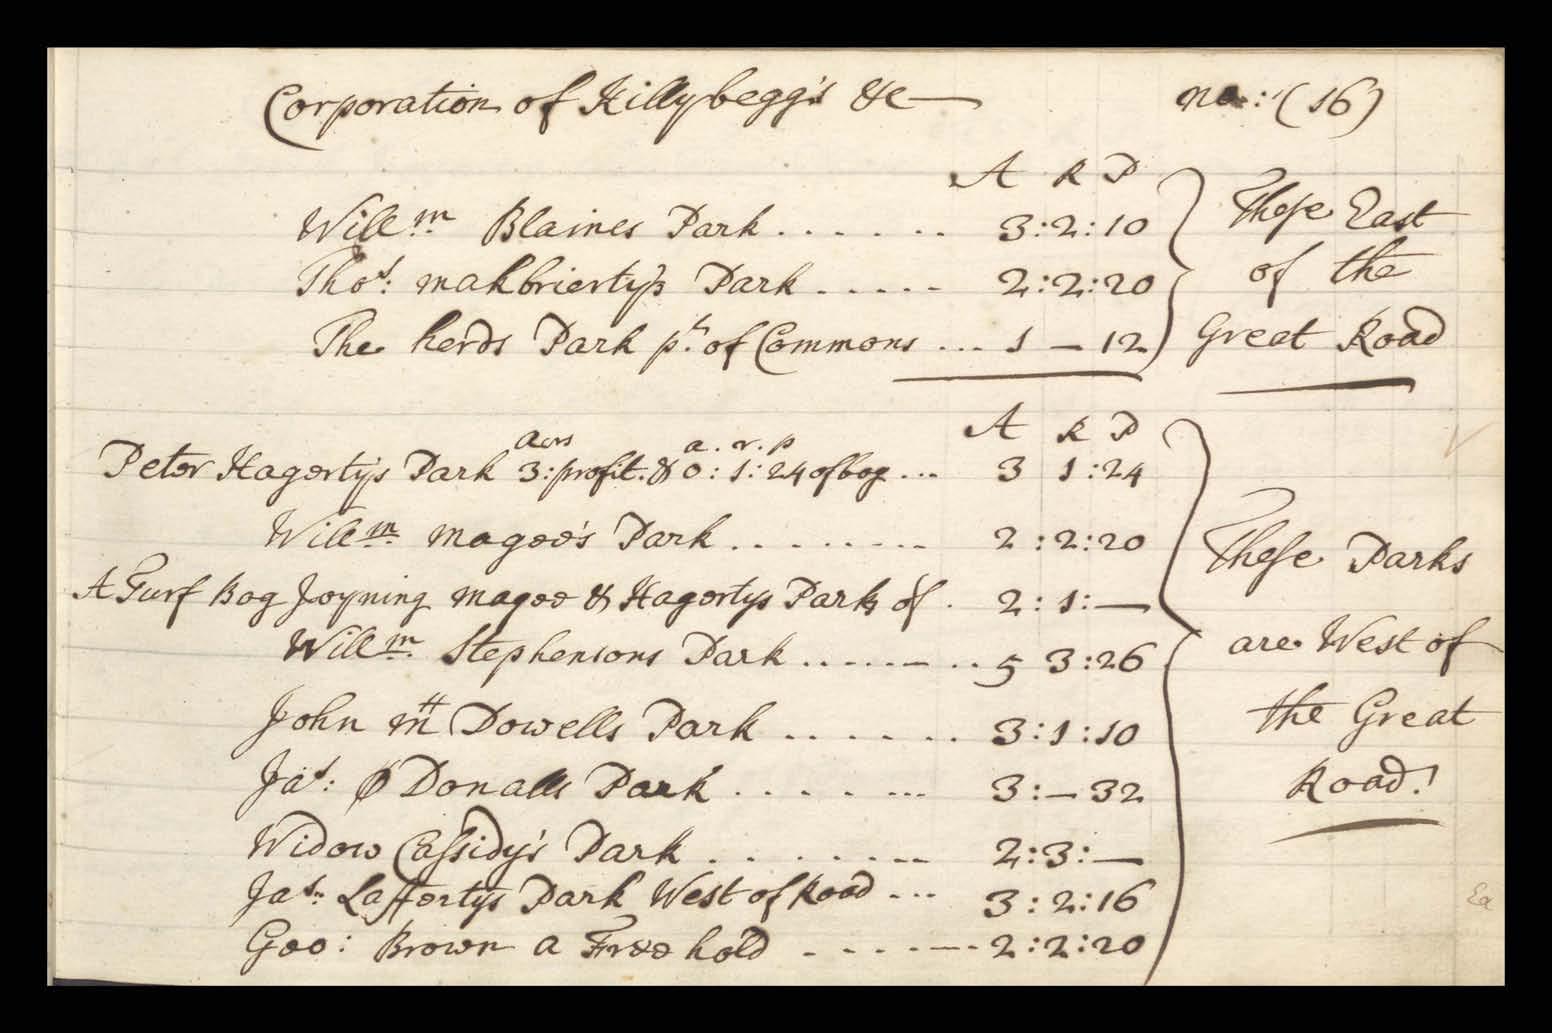 Corporation of Killybegg's &c no: (16)
A R P
Will.m Blaines Park . . . . . . . 3:2:10 These East
Thos: makbrierty's Park . . . . . 2:2:20 of the
The herds Park pt. of Commons ... 1 — 12 Great Road
A R P
acrs a . r . p
Peter Hagerty's Park 3: profit. & 0:1:24 of bog ... 3 1:24
Will.m magee's Park . . . . . . . . 2:2:20 These Parks
A Turf Bog Joyning magee & Hagertys Parks of . 2:1:—
Will.m Stephensons Park . . . . . . . . 5 3:26 are West of
John Mc Dowells Park . . . . . . . 3:1:10 the Great
Jas: O Donalls Park . . . . . ... 3:— 32 Road!
Widow Cassidy's Park . . . . . . . . 2:3:—
Jas: Laffertys Park West of Road ... 3:2:16
Geo: Brown a Free hold . . . . . . 2:2:20